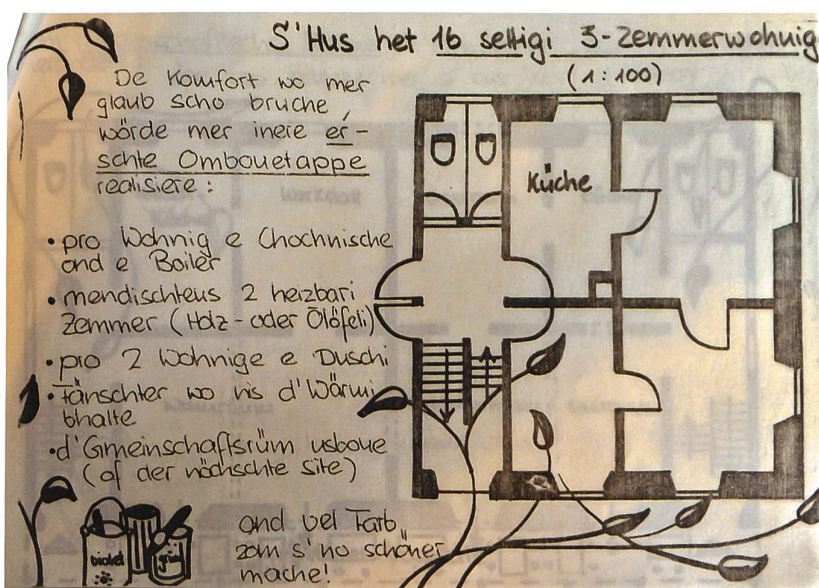 S'Hus het 16 settigi 3-Zemmerwohnig
(1:100)
De Komfort wo mer
glaub scho bruche,
wörde mer inere er-
schte Ombouetappe
realisiere:
• pro Wohnig e Chochnische
ond e Boiler
• mendischtens 2 heizbari
Zemmer (Holz- oder Ölöfeli)
• pro 2 Wohnige e Duschi
• Fänschter wo nis d'Wärmi
bhalte
• d'Gmeinschaftsrüm usboue
(of der nächschte site)
ond vel Farb,
zom s'no schöner
mache!
Küche